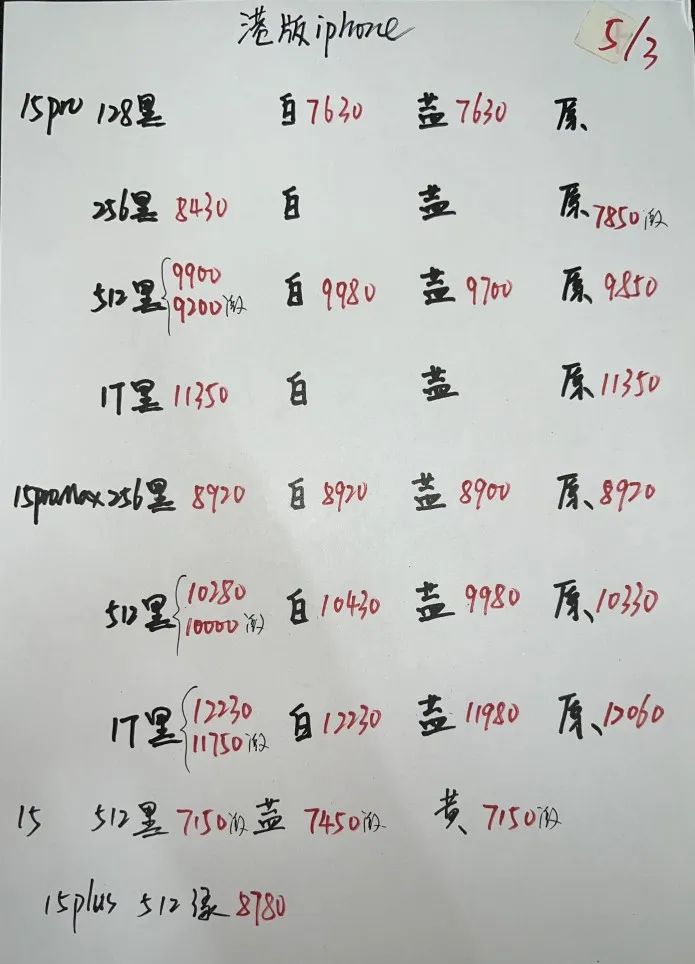 港版iphone
5/3
15pro 128黑 白7630 蓝7630 原
256黑 8430 白 蓝 原7850激
512黑 9900 9200激 白 9980 蓝 9700 原 9850
1T黑 11350 白 蓝 原 11350
15proMax 256黑 8920 白8920 蓝8900 原8920
512黑 10280 10000激 白10430 蓝9980 原10330
1T黑 12230 11750激 白12230 蓝11980 原12060
15 512黑 7150激 蓝 7450激 黄 7150激
15plus 512绿 8780